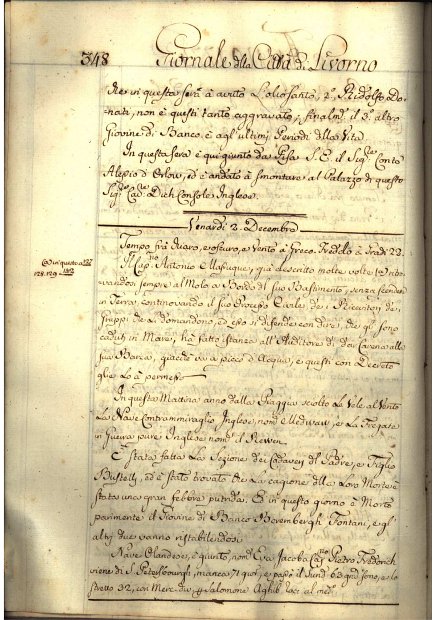 348 Giornale della Città di Livorno
Per in questa sera à avuto l'olio santo, 2.º Ridolfo Do-
nati, non è questi tanto aggravato, finalm. il 3.º altro
Giovine di Banco è agl'ultimi Periodi della Vita
In questa sera è qui giunto da Pisa S. E. il Sig. Conte
Alesio d'Orlow, ed è andato à smontare al Palazzo di questo
Sig. Cav. Dich Console Inglese.
Venardi 2. Decembre
Tempo frà chiaro, e oscuro, e Vento à Greco. Freddo à Gradi 22
Il Cap. Antonio Masuque, già descritto molte volte
vandosi sempre al Molo à Bordo di suo Bastimento, senza scender
in Terra, continovando il suo Processo Civile de
Gruppi che Le domandono, ed esso si difende con dire, che gli sono
caduti in Mare, hà fatto istanza all'Auditore di
sua Barca, giacché và à picco d'Acqua, e questi con Decreto
glie Lo à permesso
In questa Mattina anno dalla Piaggia sciolto Le Vele al Vento
La Nave Contrammiraglio Inglese, nom. Medwaw, e La Fregata
in Guerra pure Inglese nom. il Rewen.
È stata fatta La Sezione dei Cadaveri del Padre, e Figlio
Bustelli, ed è stato trovato che La cagione della Loro Morte è
stata una gran febbre putrida. E in questo giorno è Morto
parimente il Giovine di Banco Berembergh Fontani, e gl'
altri due vanno ristabilendosi.
Nave Olandese, è giunto, nom. Eva Jacoba Cap. Pietro Frederich
viene di S. Petersbourgh, manca 71 gior., e passò il Sund 63 gior. sono, e lo
Stretto 32, con Merc. div. Salomone Aghib
(a) in questo a
128. 129